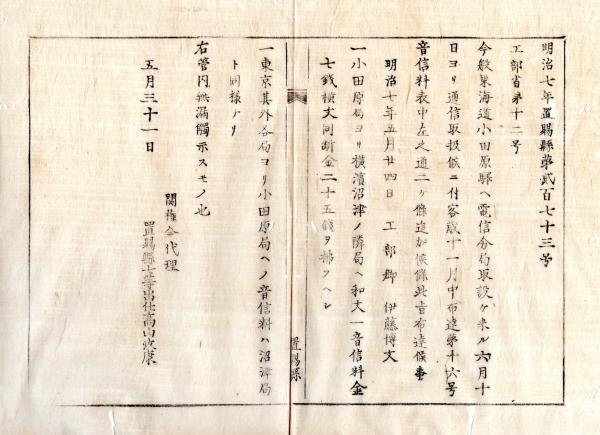 明治七年置賜縣第貳百七十三号
工部省第十二号
今般東海道小田原驛ヘ電信分局取設ケ来ル六月十
日ヨリ通信取扱候ニ付客歳十一月中布達第十六号
音信料表中左之通二ケ條追加候條此旨布達候事
明治七年五月廿四日 工部卿 伊藤博文
一小田原局ヨリ横濱沼津ノ隣局ヘ和文一音信料金
七銭横文同断金二十五銭ヲ拂フヘシ
一東京其外各局ヨリ小田原局ヘノ音信料ハ沼津局
ト同様タリ
右管内無漏觸示スモノ也
五月三十一日
関権令代理
置賜縣七等出仕高山
置賜縣